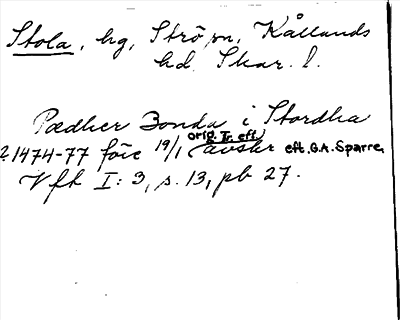 Stola, hg, Strö sn, Kållands
hd. Skar. l.
Pædher Bonda i Stordha
orig. Tr. eft
? 1474-77 före 19/1 avskr eft. G.A. Sparre,
Vfk I: 3, s. 13, pb 27.